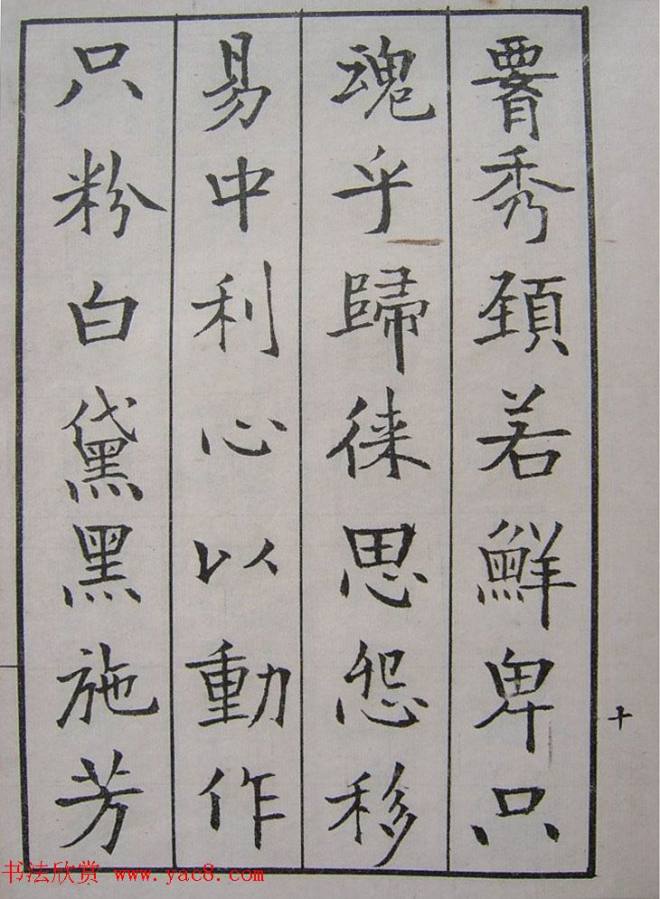 腰秀頸若鮮卑只
魂乎歸徠思怨移
易中利心以動作
只粉白黛黑施芳
十
书法欣赏 www.yac8.com